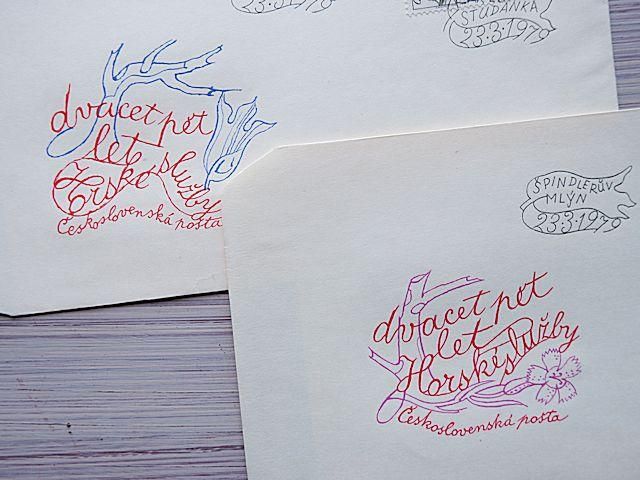 STUDÁNKA
23·3·1979
23·3·1979
dvacet pět
let
Horské služby
Československá pošta
ŠPINDLERŮV
MLÝN
23·3·1979
dvacet pět
let
Horské služby
Československá pošta